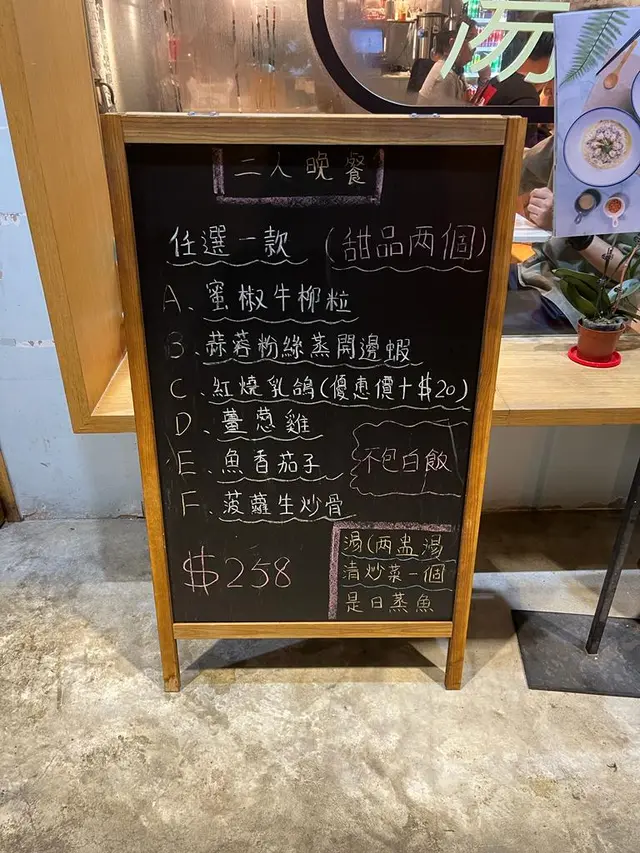 二人晚餐
任選一款 (甜品两個)
A、蜜椒牛柳粒
B、蒜蓉粉絲蒸開邊蝦
C、紅燒乳鴿(優惠價+$20)
D、薑蔥雞
E、魚香茄子
F、菠蘿生炒骨
不包白飯
$258
湯(两盅湯
清炒菜一個
是日蒸魚